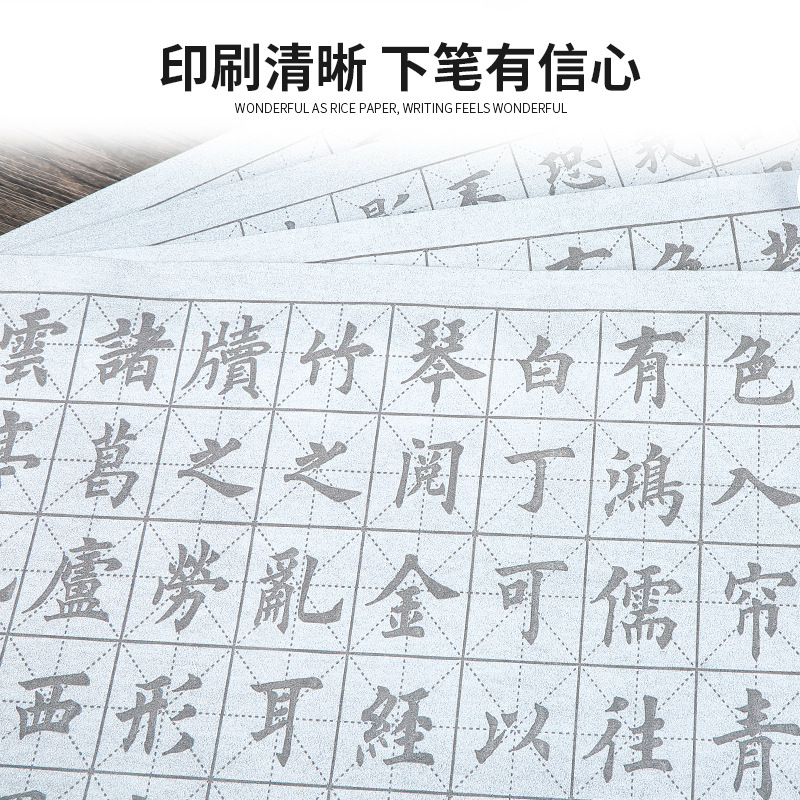 印刷清晰 下笔有信心
WONDERFUL AS RICE PAPER, WRITING FEELS WONDERFUL
色入帘青
有鴻儒往
白丁可以
琴閱金經
竹之亂耳
牘之勞形
諸葛廬西
雲